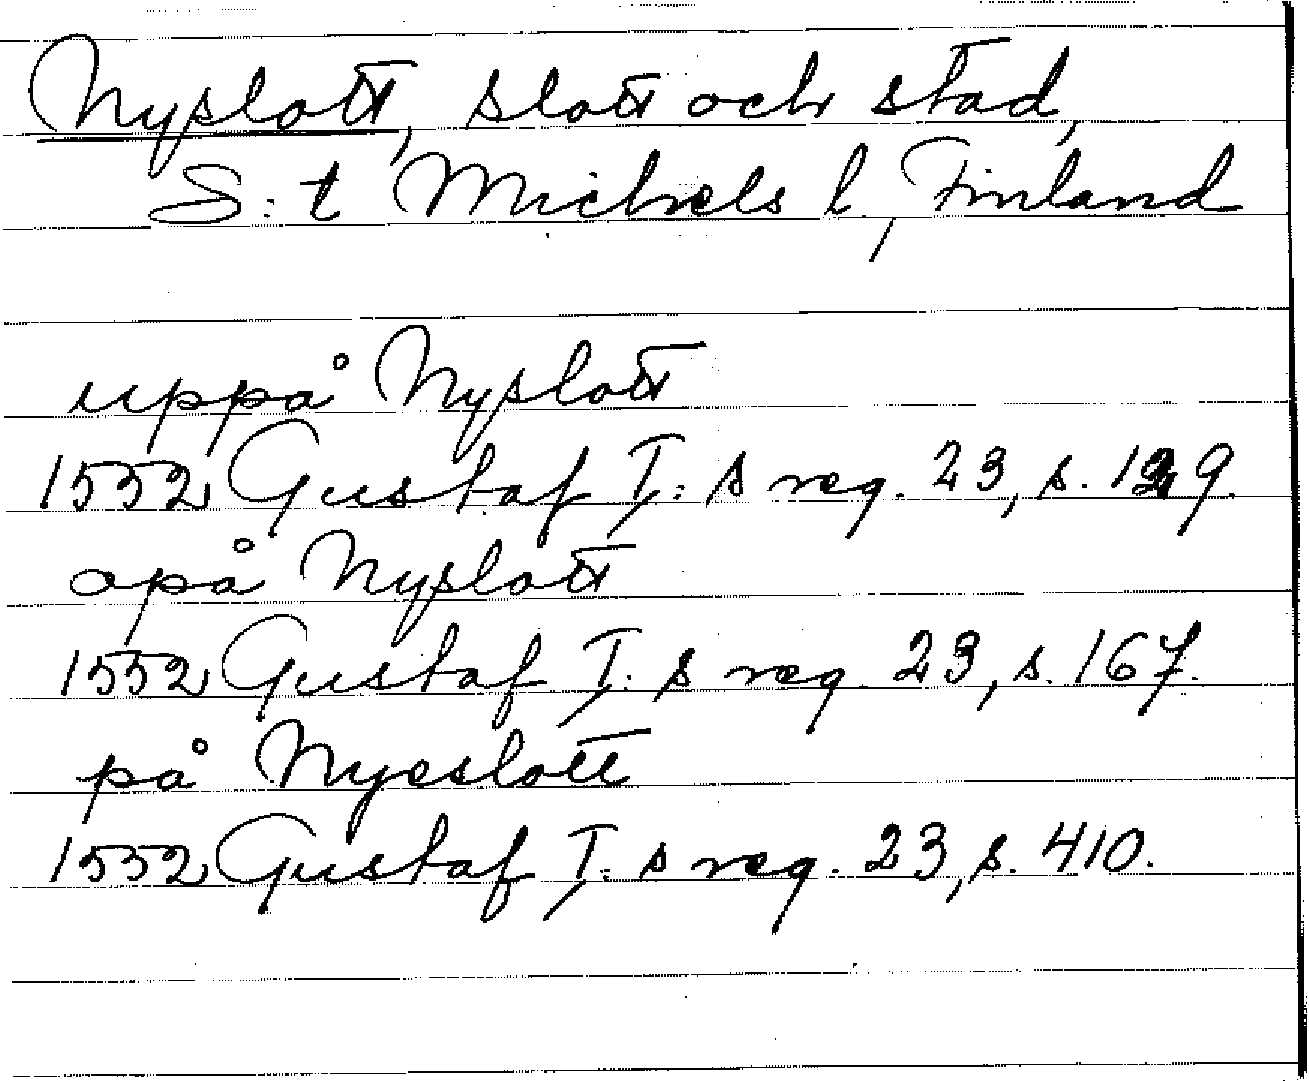 Nyslott, slott och stad,
S:t Michels l., Finland
uppå Nyslott
1552 Gustaf I:s reg. 23, s.
opå Nyslott
1552 Gustaf I:s reg. 23, s. 167.
på Nyeslott
1552 Gustaf I:s reg. 23, s. 410.